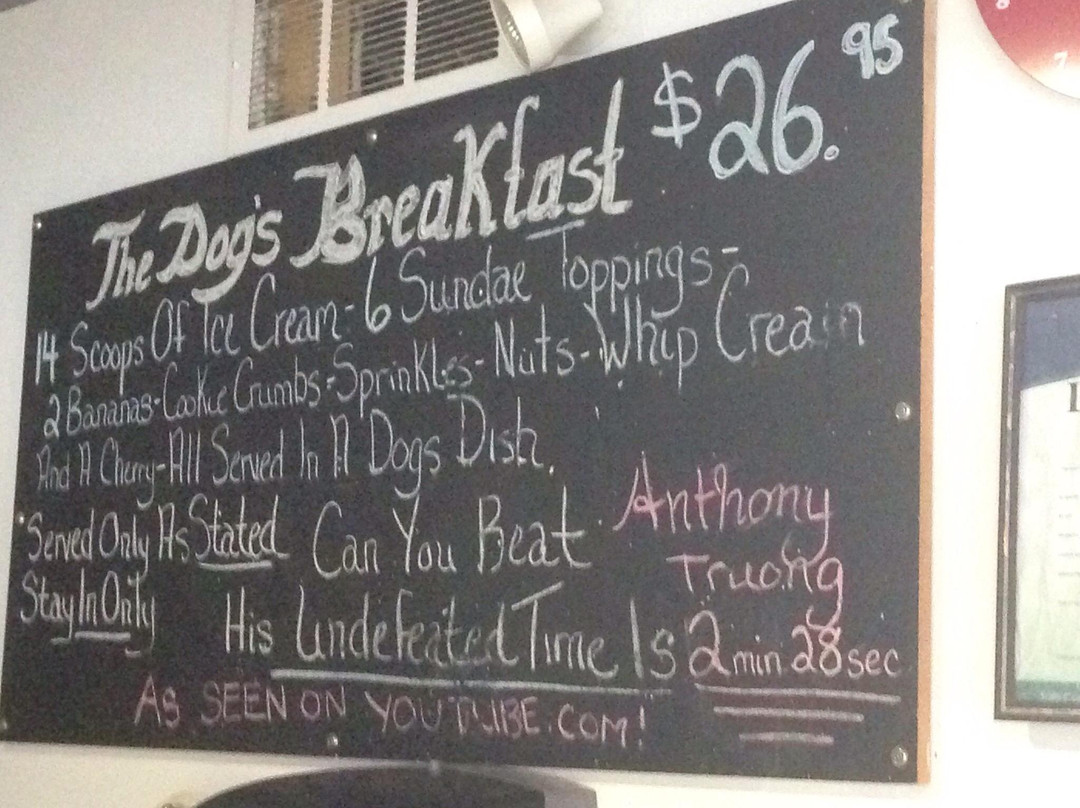 The Dog's Breakfast $26.95
14 Scoops Of Ice Cream - 6 Sundae Toppings -
2 Bananas - Cookie Crumbs - Sprinkles - Nuts - Whip Cream
And A Cherry - All Served In A Dogs Dish.
Served Only As Stated
Stay In Only
Can You Beat Anthony
Truong
His Undefeated Time Is 2 min 28 sec
AS SEEN ON YOUTUBE.COM!